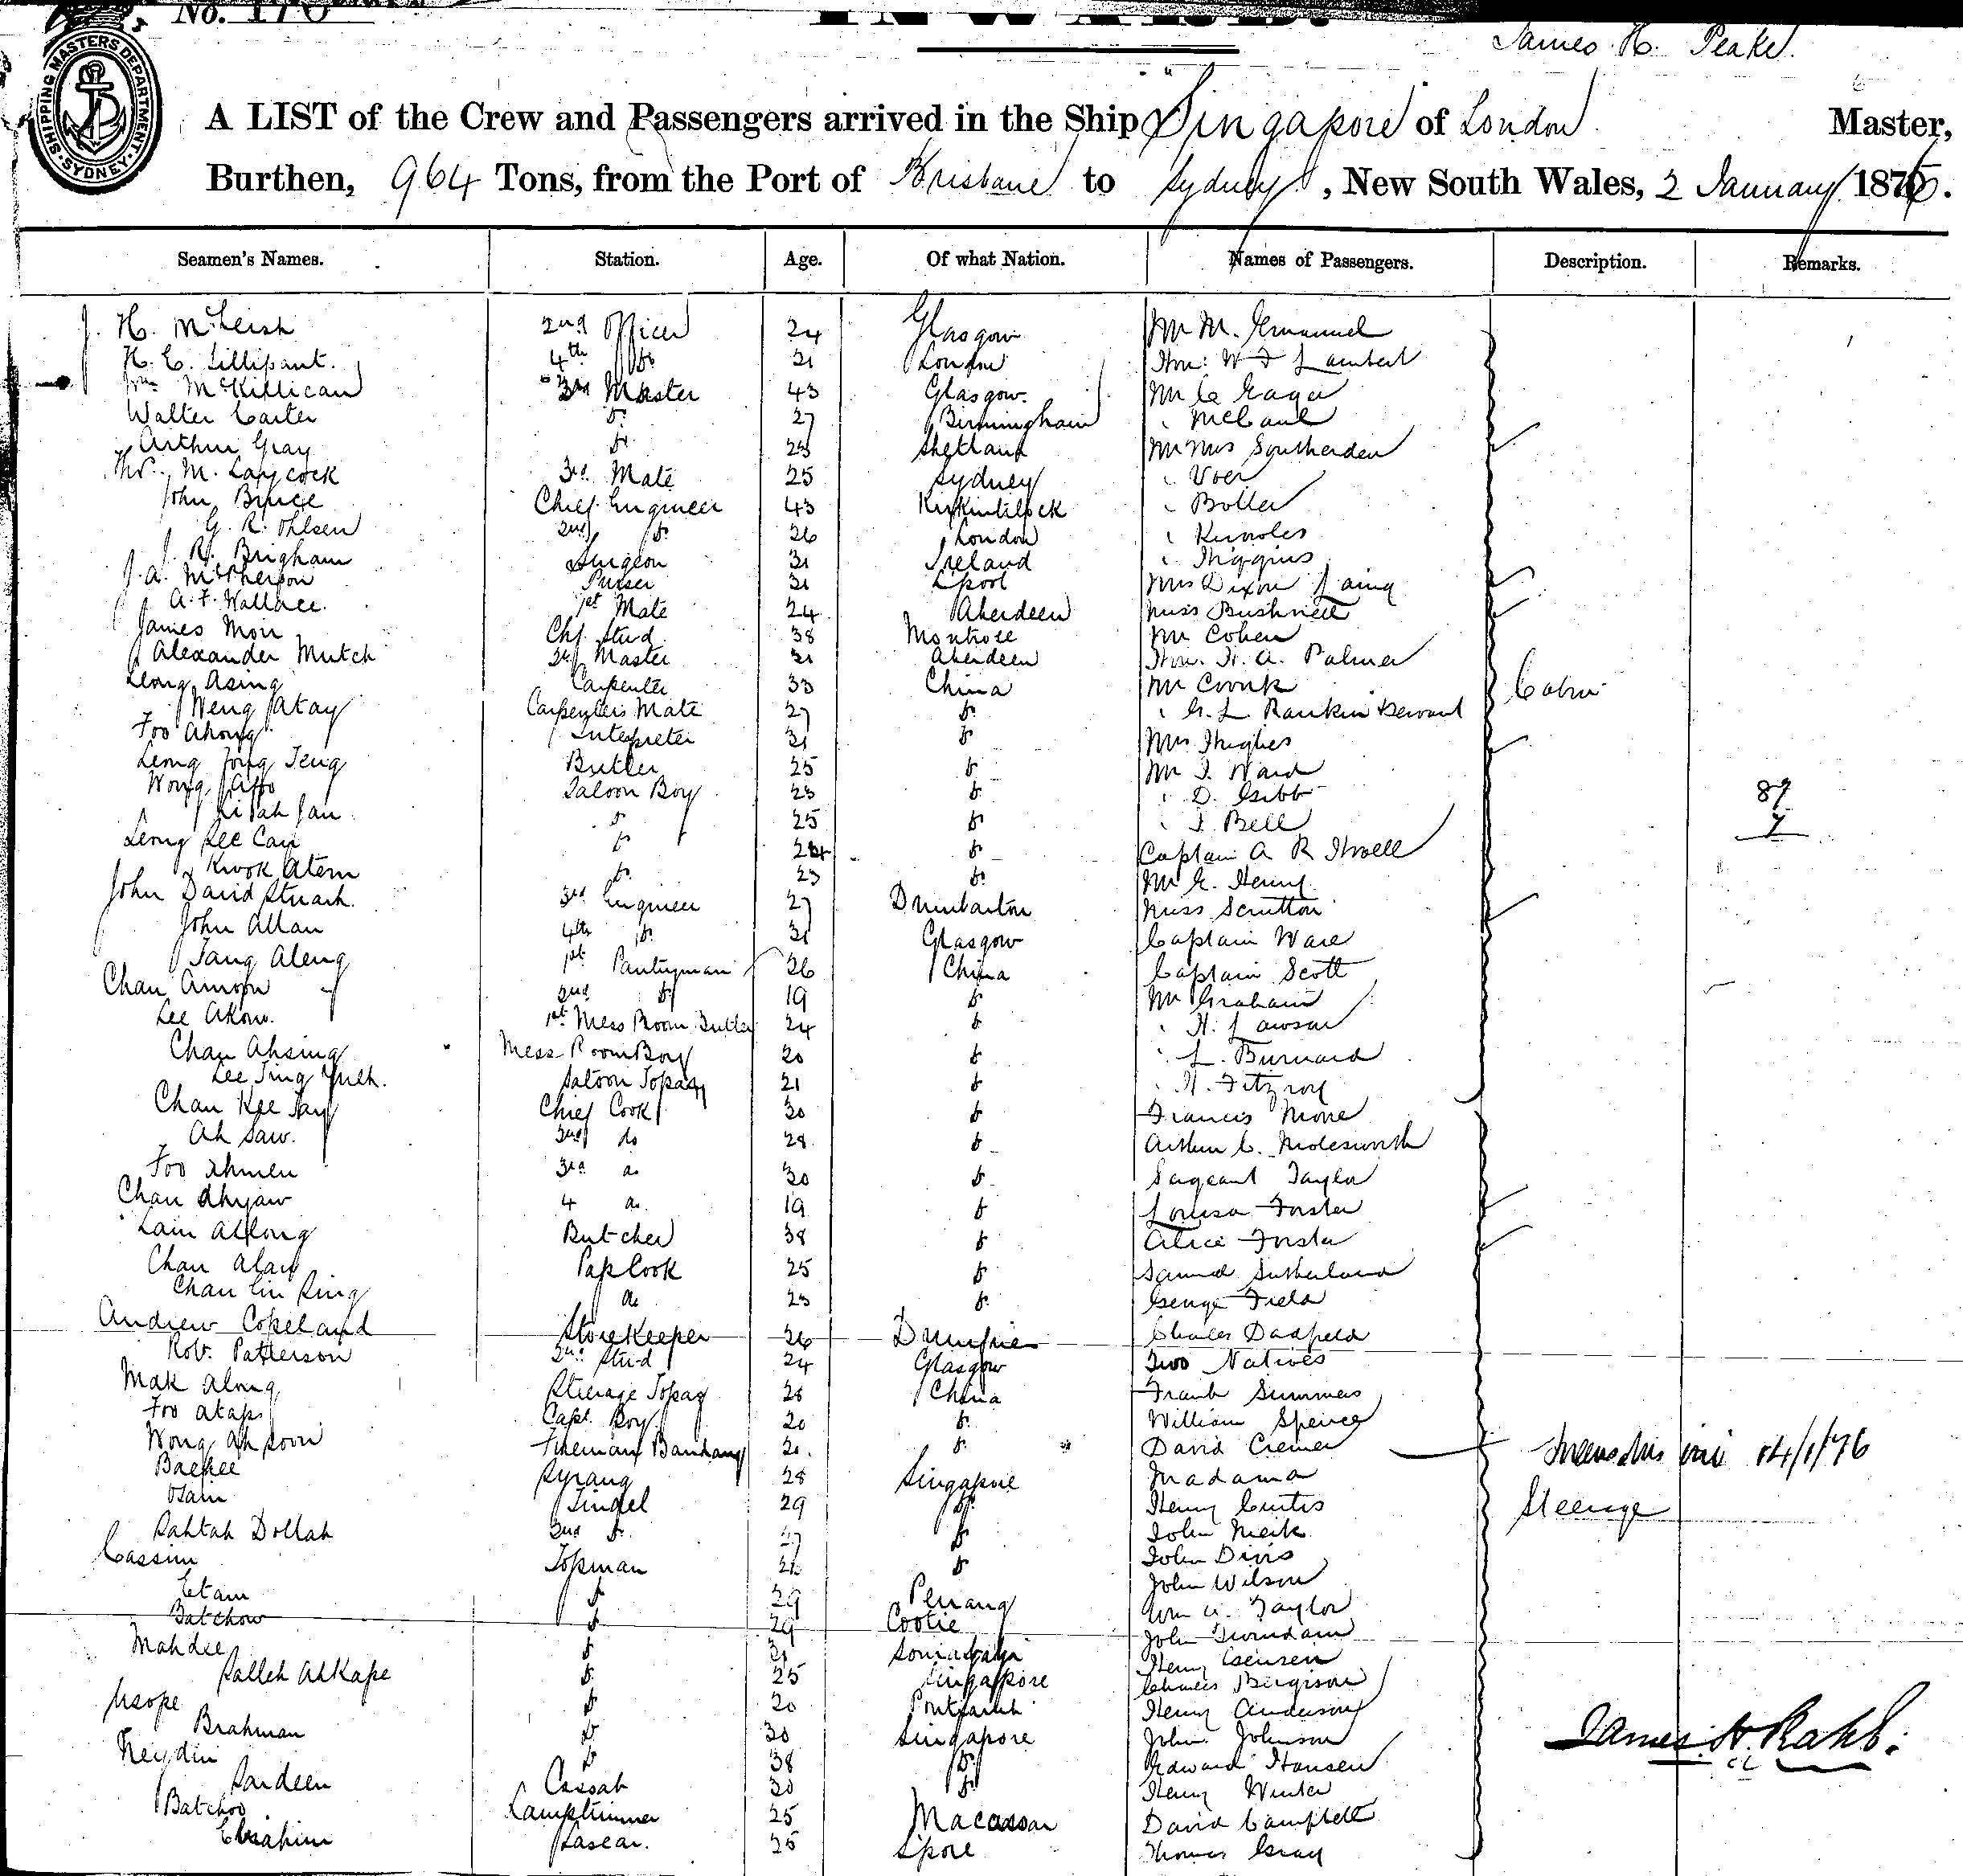 No. 170
INWARD.
SHIPPING MASTERS DEPARTMENT. SYDNEY.
James H. Peake.
A LIST of the Crew and Passengers arrived in the Ship Singapore of London Master,
Burthen, 964 Tons, from the Port of Brisbane to Sydney, New South Wales, 2 January 1876.
Seamen's Names. Station. Age. Of what Nation. Names of Passengers. Description. Remarks.
J. H. McLeish 2nd Officer 24 Glasgow Mr M. Emanuel
H. E. Lillipant. 4th Do 21 London Hon: W F Lambert
Wm McKillican 3rd Master 43 Glasgow. Mr C Eager
Walter Carter Do 27 Birmingham " McCaul
Arthur Gray Do 23 Shetland Mr Mrs Southerden
Thos. M. Laycock 3rd Mate 25 Sydney " Voer
John Bruce Chief Engineer 43 Kirkintilock " Boller
G. R. Ohlsen 2nd Do 26 London " Knowles
J. R. Brigham Surgeon 31 Ireland " Higgins
J. A. McPherson Purser 31 L'pool Mrs Dixon Laing
A. F. Wallace. 1st Mate 24 Aberdeen Miss Bushnell
James Moir Chf. Stud. 38 Montrose Mr Cohen
Alexander Mutch Master 21 Aberdeen Hon. H. A. Palmer
Leong Asing Carpenter 33 China Mr Cronk Cabin
Weng Atay Carpenters Mate 27 Do " G. L. Rankin Servant
Foo Ahong Interpreter 31 Do Mrs Hughes
Leong Fong Teng Butler 25 Do Mr J. Ward
Wong Affo Saloon Boy 23 Do " D. Gibb 87
Li Pah Jan Do 25 Do " J. Bell 7
Leong Kee Can Do 24 Do Captain A R Howell
Kwok Atem Do 23 Do Mr E. Henry
John David Stuart. 3rd Engineer 27 Dumbarton Miss Scrutton
John Allan 4th Do 31 Glasgow Captain Ware
Tang Aleng 1st Pantryman 26 China Captain Scott
Chan Amoon 2nd Do 19 Do Mr Graham
Lee Akow. 1st Mess Room Butler 24 Do " H. Lawson
Chan Ahsing Mess Room Boy 20 Do " L. Burnard
Lee Ting Yueh. Saloon Topaz 21 Do " H. Fitzroy
Chan Kee Fay Chief Cook 30 Do Francis More
Ah Saw. 2nd do 28 Do Arthur C. Molesworth
Foo Ahmen 3rd do 30 Do Sargeant Taylor
Chan Ahyaw 4 do 19 Do Louisa Forster
Lain Ahlong Butcher 38 Do Alice Forster
Chan Alan Pap Cook 25 Do Samuel Sutherland
Chan Lin Sing do 23 Do George Field
Andrew Copeland Storekeeper 26 Dumfrie Charles Dadfield
Robt. Patterson 2nd Stud 24 Glasgow Two Natives
Mak Along Steerage Topaz 28 China Frank Summers
Foo Atap Capt. Boy 20 Do William Spence
Wong Ah Soon Fireman Bandang 20. Do David Cremer 14/1/76
Bachee Syrang 28 Singapore Madama
Osam Tindel 29 Do Henry Curtis Steerage
Sahtah Dollah 2nd Do 27 Do John Meik
Cassim Topman 21 Do John Divis
Etam Do 29 Penang John Wilson
Batchow Do 29 Cootie Wm A. Taylor
Mahdee Do 31 Sourabaya John Turndam
Salleh Ahkape Do 25 Singapore Henry Jensen
Usope Do 20 Pontianak Charles Birgison
Brahman Do 30 Singapore Henry Anderson
Neydin Do 38 Do John Johnson
Sardeen Cassab 30 Do Edward Hansen
Batchoo Lamptrimmer 25 Macassar Henry Winter
Ebrahim Lascar. 35 S'pore David Campbell
Thomas Gray
James H. Peake